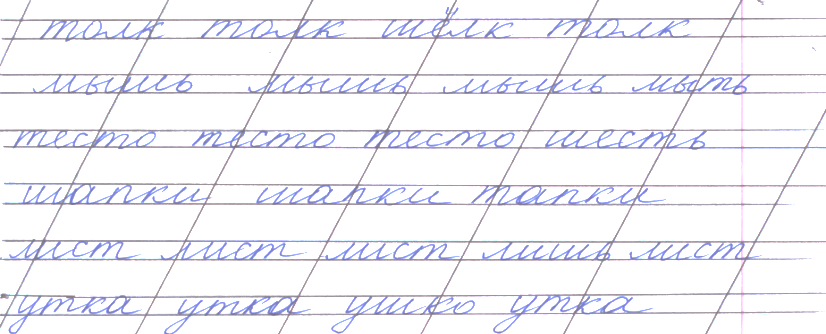 толк толк шёлк толк
мышь мышь мышь мыть
тесто тесто тесто шесть
шапки шапки тапки
лист лист лист лишь лист
утка утка ушко утка